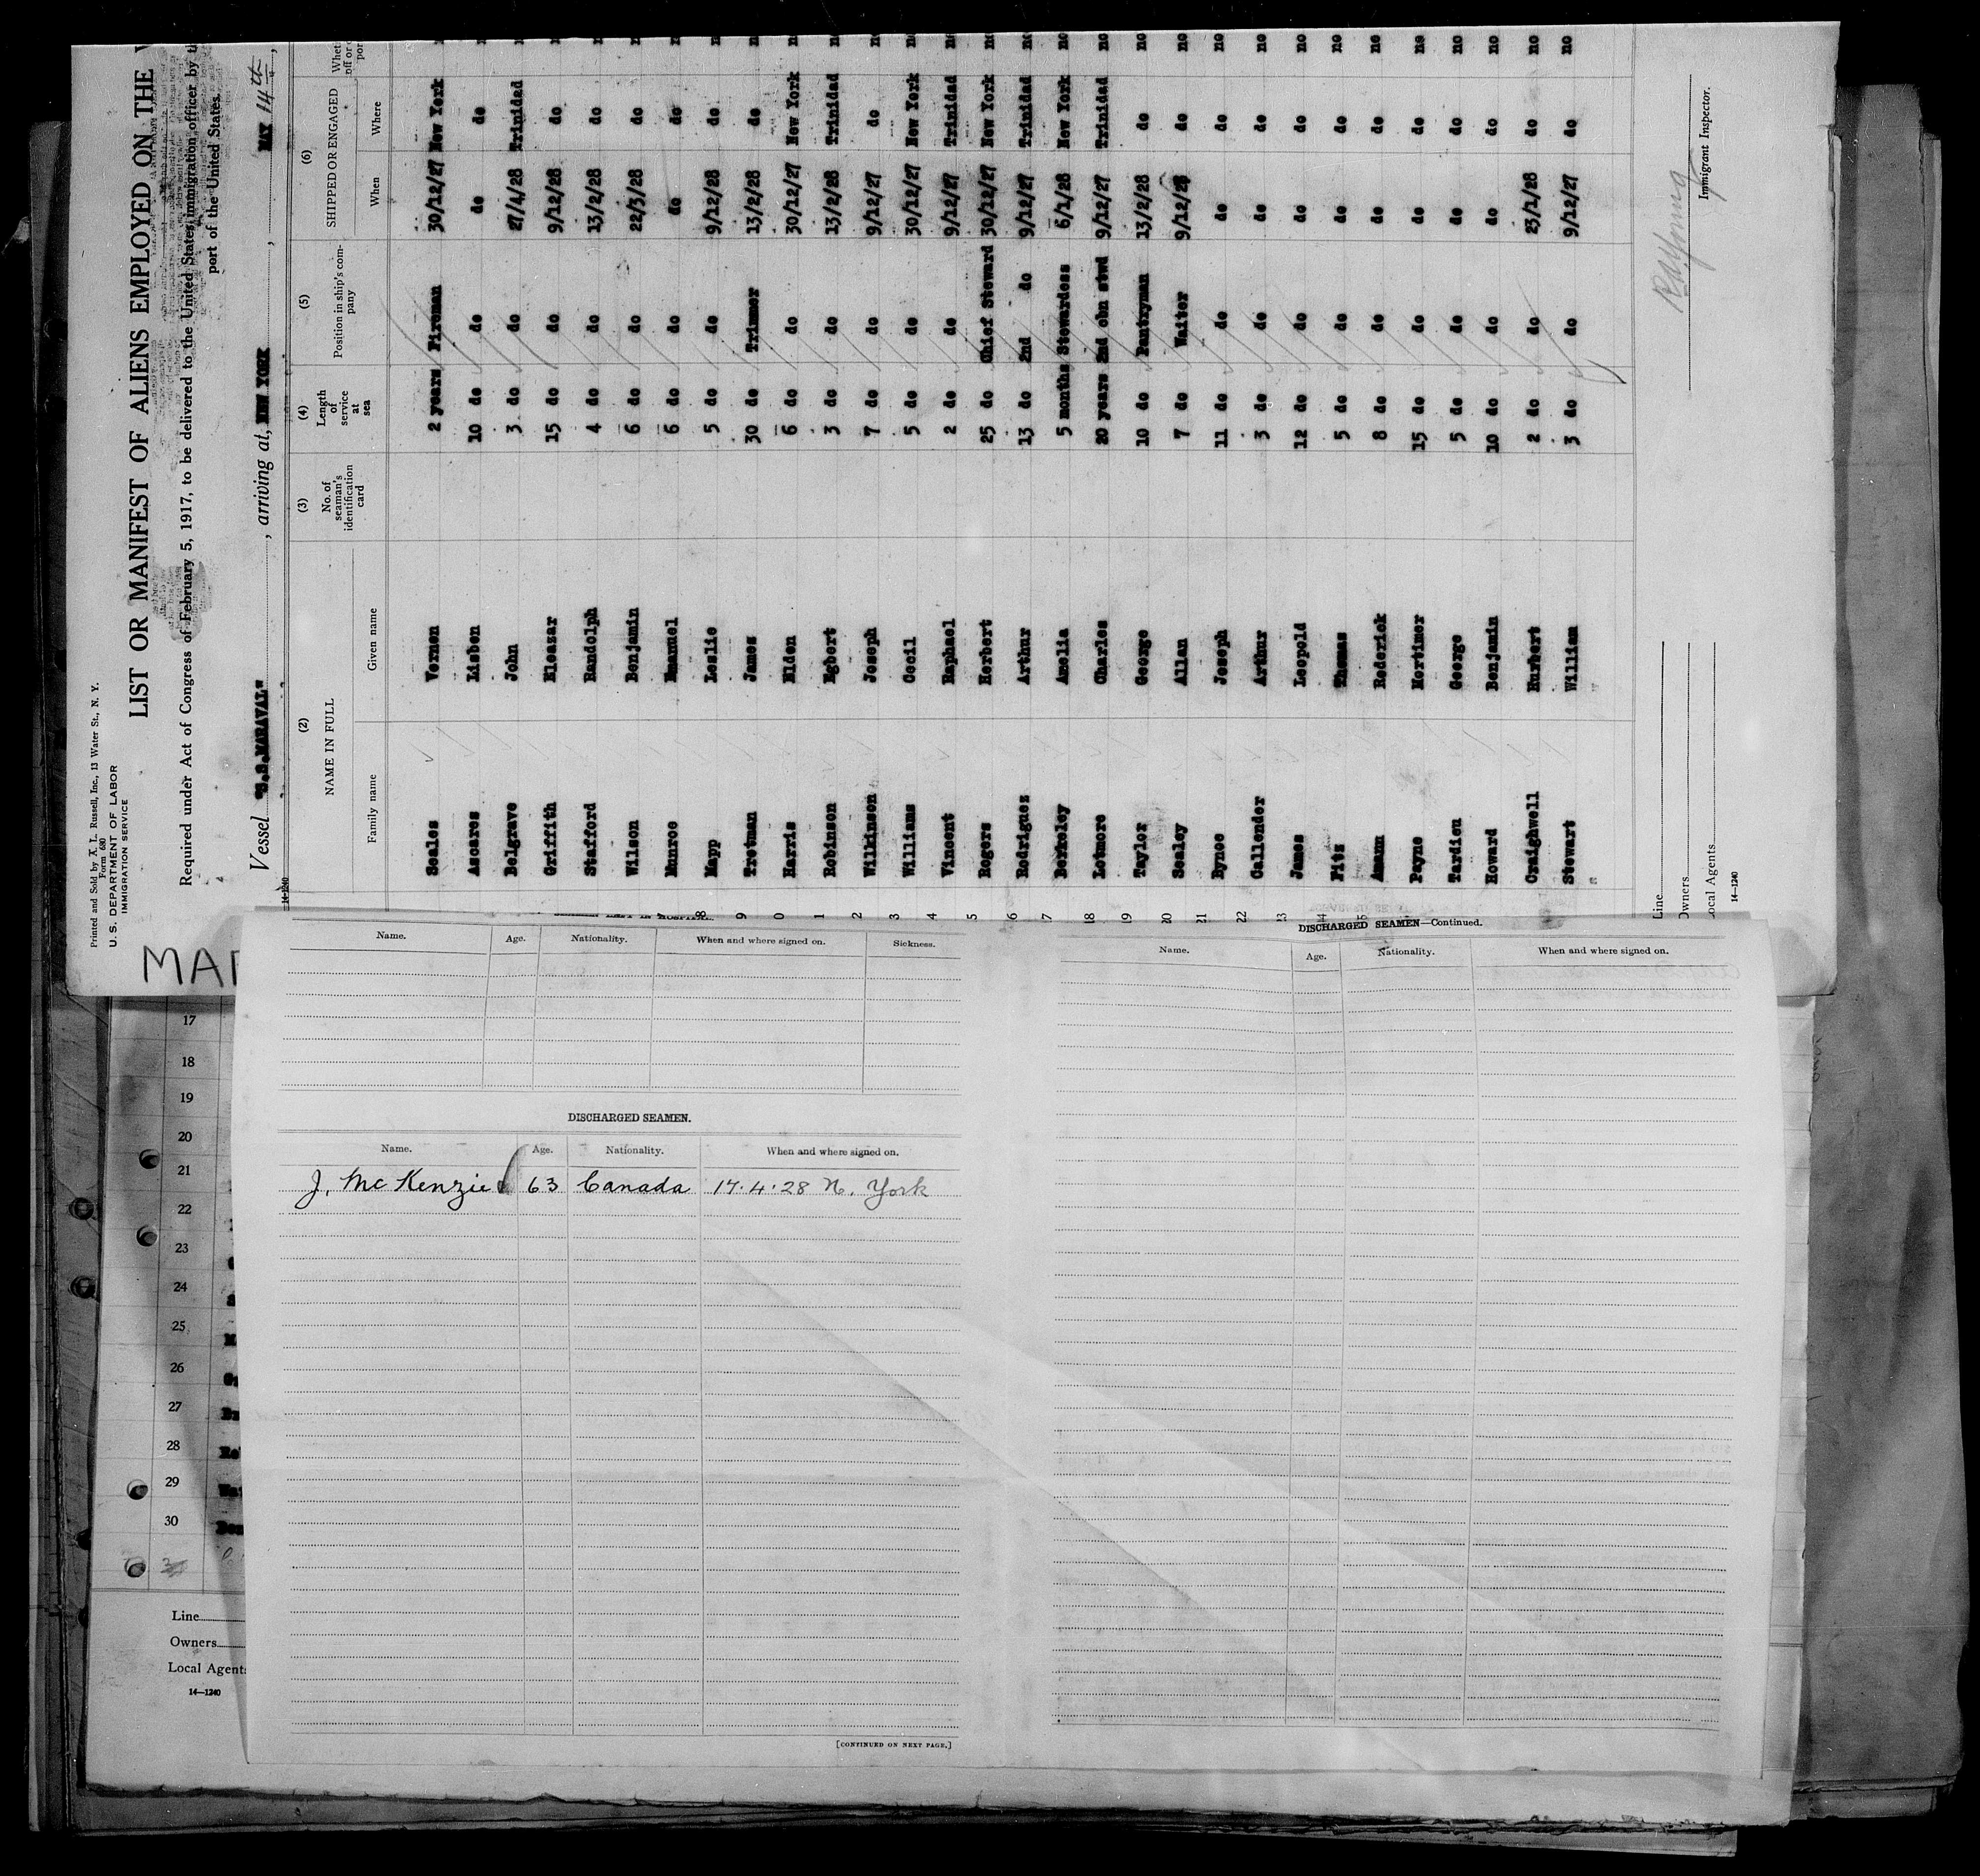 Printed and Sold by X. L. Russell, Inc., 13 Water St., N. Y.
Form 680
U. S. DEPARTMENT OF LABOR
IMMIGRATION SERVICE
LIST OR MANIFEST OF ALIENS EMPLOYED ON THE
Required under Act of Congress of February 5, 1917, to be delivered to the United States immigration officer by
port of the United States.
Vessel "S.S.MARAVAL", arriving at, NEW YORK, MAY 14th,
14-1240
(2) (3) (4) (5) (6)
NAME IN FULL No. of seaman's identification card Length of service at sea Position in ship's company SHIPPED OR ENGAGED
Family name Given name When Where
Seales Vernon 2 years Fireman 30/12/27 New York
Ascares Lisben 10 do do do do
Belgrave John 3 do do 27/4/28 Trinidad
Griffith Eleazar 15 do do 9/12/28 do
Stafford Randolph 4 do do 13/2/28 do
Wilson Benjamin 6 do do 22/3/28 do
Munroe Emanuel 6 do do do do
8 Mapp Leslie 5 do do 9/12/28 do
9 Tretman James 30 do Trimmer 13/2/28 do
0 Harris Elden 6 do do 30/12/27 New York no
1 Robinson Egbert 3 do do 13/2/28 Trinidad no
2 Wilkinson Joseph 7 do do 9/12/27 do no
3 Williams Cecil 5 do do 30/12/27 New York no
4 Vincent Raphael 2 do do 9/12/27 Trinidad no
5 Rogers Herbert 25 do Chief Steward 30/12/27 New York no
6 Rodriguez Arthur 13 do 2nd do 9/12/27 Trinidad no
7 Berkeley Amelia 5 months Stewardess 6/1/28 New York no
18 Lotmore Charles 20 years 2nd cbn stwd 9/12/27 Trinidad no
19 Taylor George 10 do Pantryman 13/2/28 do no
20 Sealey Allan 7 do Waiter 9/12/28 do no
21 Bynoe Joseph 11 do do do do no
22 Callender Arthur 3 do do do do no
13 James Leopold 12 do do do do no
14 Fitz Thomas 5 do do do do no
15 Amann Rederick 8 do do do do no
Payne Mortimer 15 do do do do no
Tardieu George 5 do do do do no
Howard Benjamin 10 do do do do no
Craighwell Hurbert 2 do do 23/1/28 do no
Stewart William 3 do do 9/12/27 do no
Line
Owners
Local Agents
14-1240
Immigrant Inspector.
MAR
17
18
19
20
21
22
23
24
25
26
27
28
29
30
Line
Owners
Local Agents
14-1240
Name. Age. Nationality. When and where signed on. Sickness.
DISCHARGED SEAMEN.
Name. Age. Nationality. When and where signed on.
J. McKenzie 63 Canada 17.4.28 N. York
[CONTINUED ON NEXT PAGE.]
DISCHARGED SEAMEN—Continued.
Name. Age. Nationality. When and where signed on.